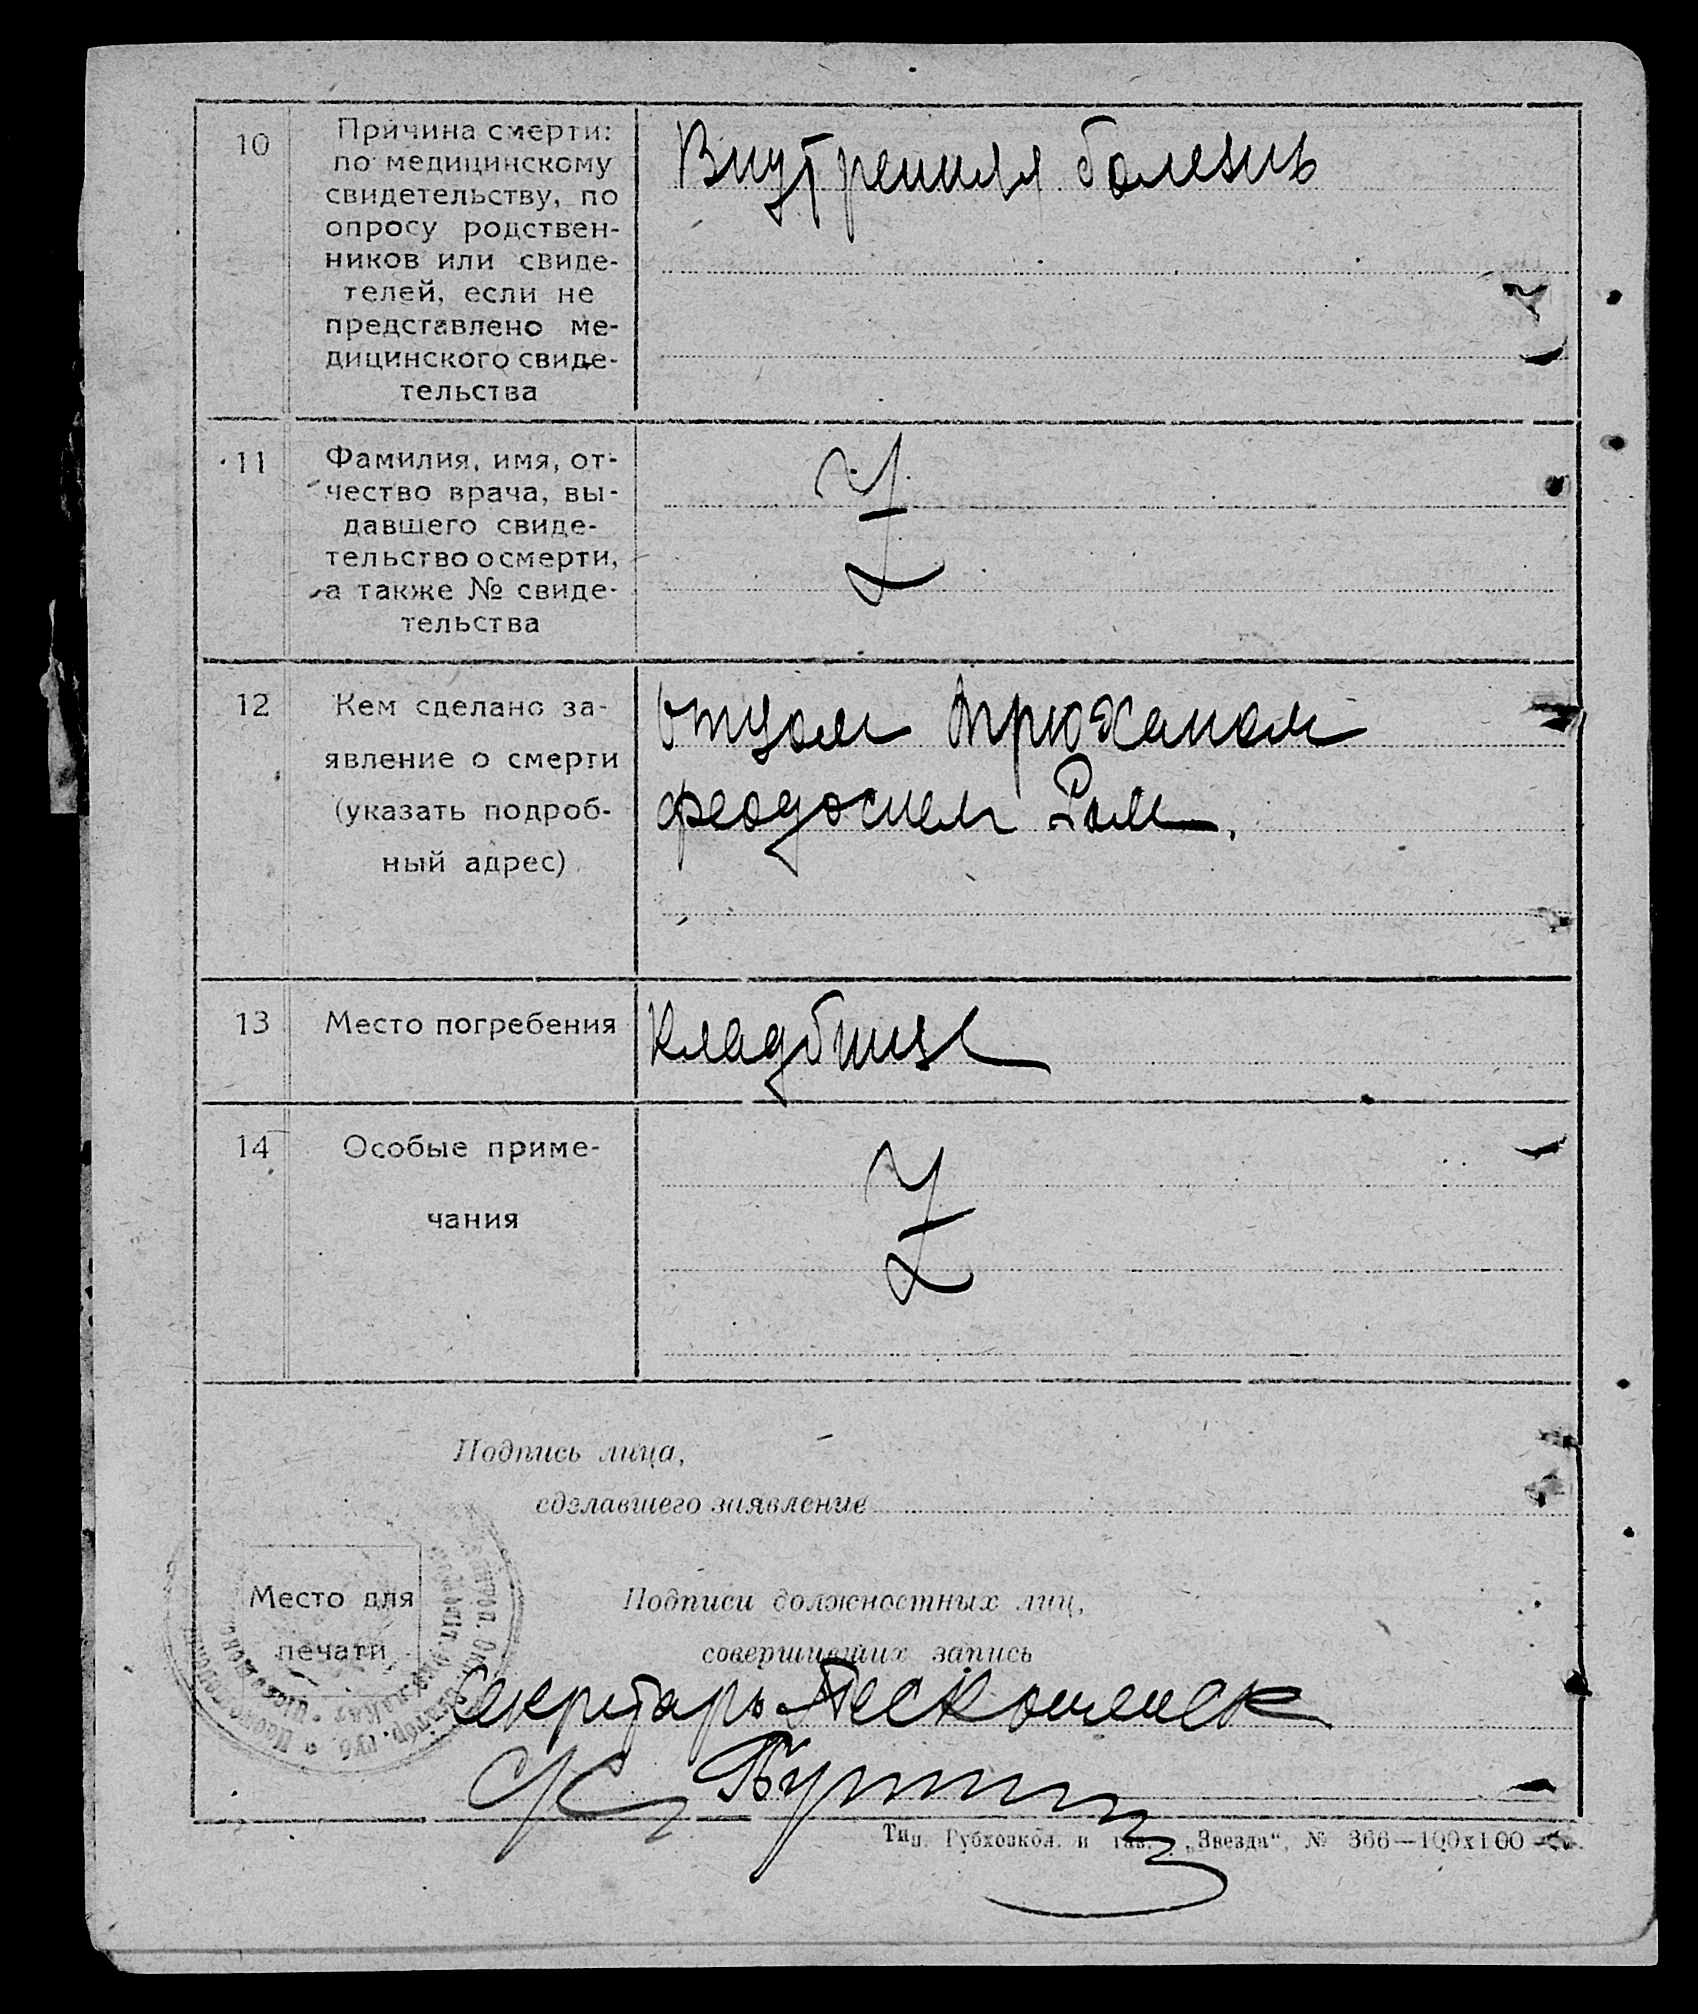 10
Причина смерти:
по медицинскому
свидетельству, по
опросу родствен-
ников или свиде-
телей, если не
представлено ме-
дицинского свиде-
тельства
Внутренняя болезнь
11
Фамилия, имя, от-
чество врача, вы-
давшего свиде-
тельство о смерти,
а также № свиде-
тельства
12
Кем сделано за-
явление о смерти
(указать подроб-
ный адрес)
отцом Трюханом
феодосием Ром.
13
Место погребения
Кладбище
14
Особые приме-
чания
Подпись лица,
сделавшего заявление
Место для
печати
Подписи должностных лиц,
совершивших запись
Секретарь
Тип. Губхозкол. и газ. „Звезда“, № 366—100x100